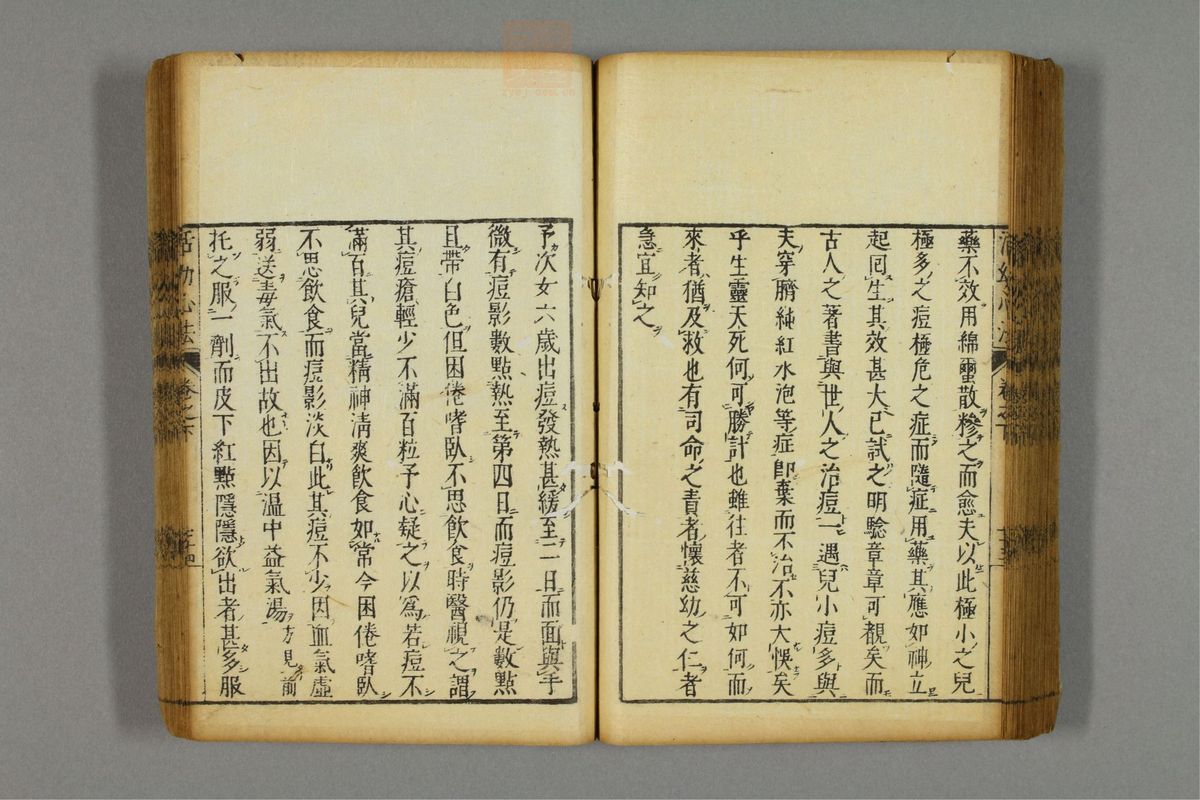 藥不效用綿蠒散糝之而愈夫以此極小之兒
極多之痘極危之症而隨症用藥其應如神立
起囘生其效甚大已試之明驗章章可覩矣而
古人之著書與世人之治痘一遇兒小痘多與
夫穿臍純紅水泡等症卽棄而不治不亦大悞矣
乎生靈夭死何可勝計也雖往者不可如何而
來者猶及救也有司命之責者懷慈幼之仁者
急宜知之
予次女六歲出痘發熱甚緩至二日而面與手
微有痘影數點熱至第四日而痘影仍是數點
且帶白色但困倦嗜臥不思飲食時醫視之謂
其痘瘡輕少不滿百粒予心疑之以爲若痘不
滿百其兒當精神清爽飲食如常今困倦嗜臥
不思飲食而痘影淡白此其痘不少因血氣虛
弱送毒氣不出故也因以溫中益氣湯方見前
托之服一劑而皮下紅點隱隱欲出者甚多服
活幼心法 卷之下